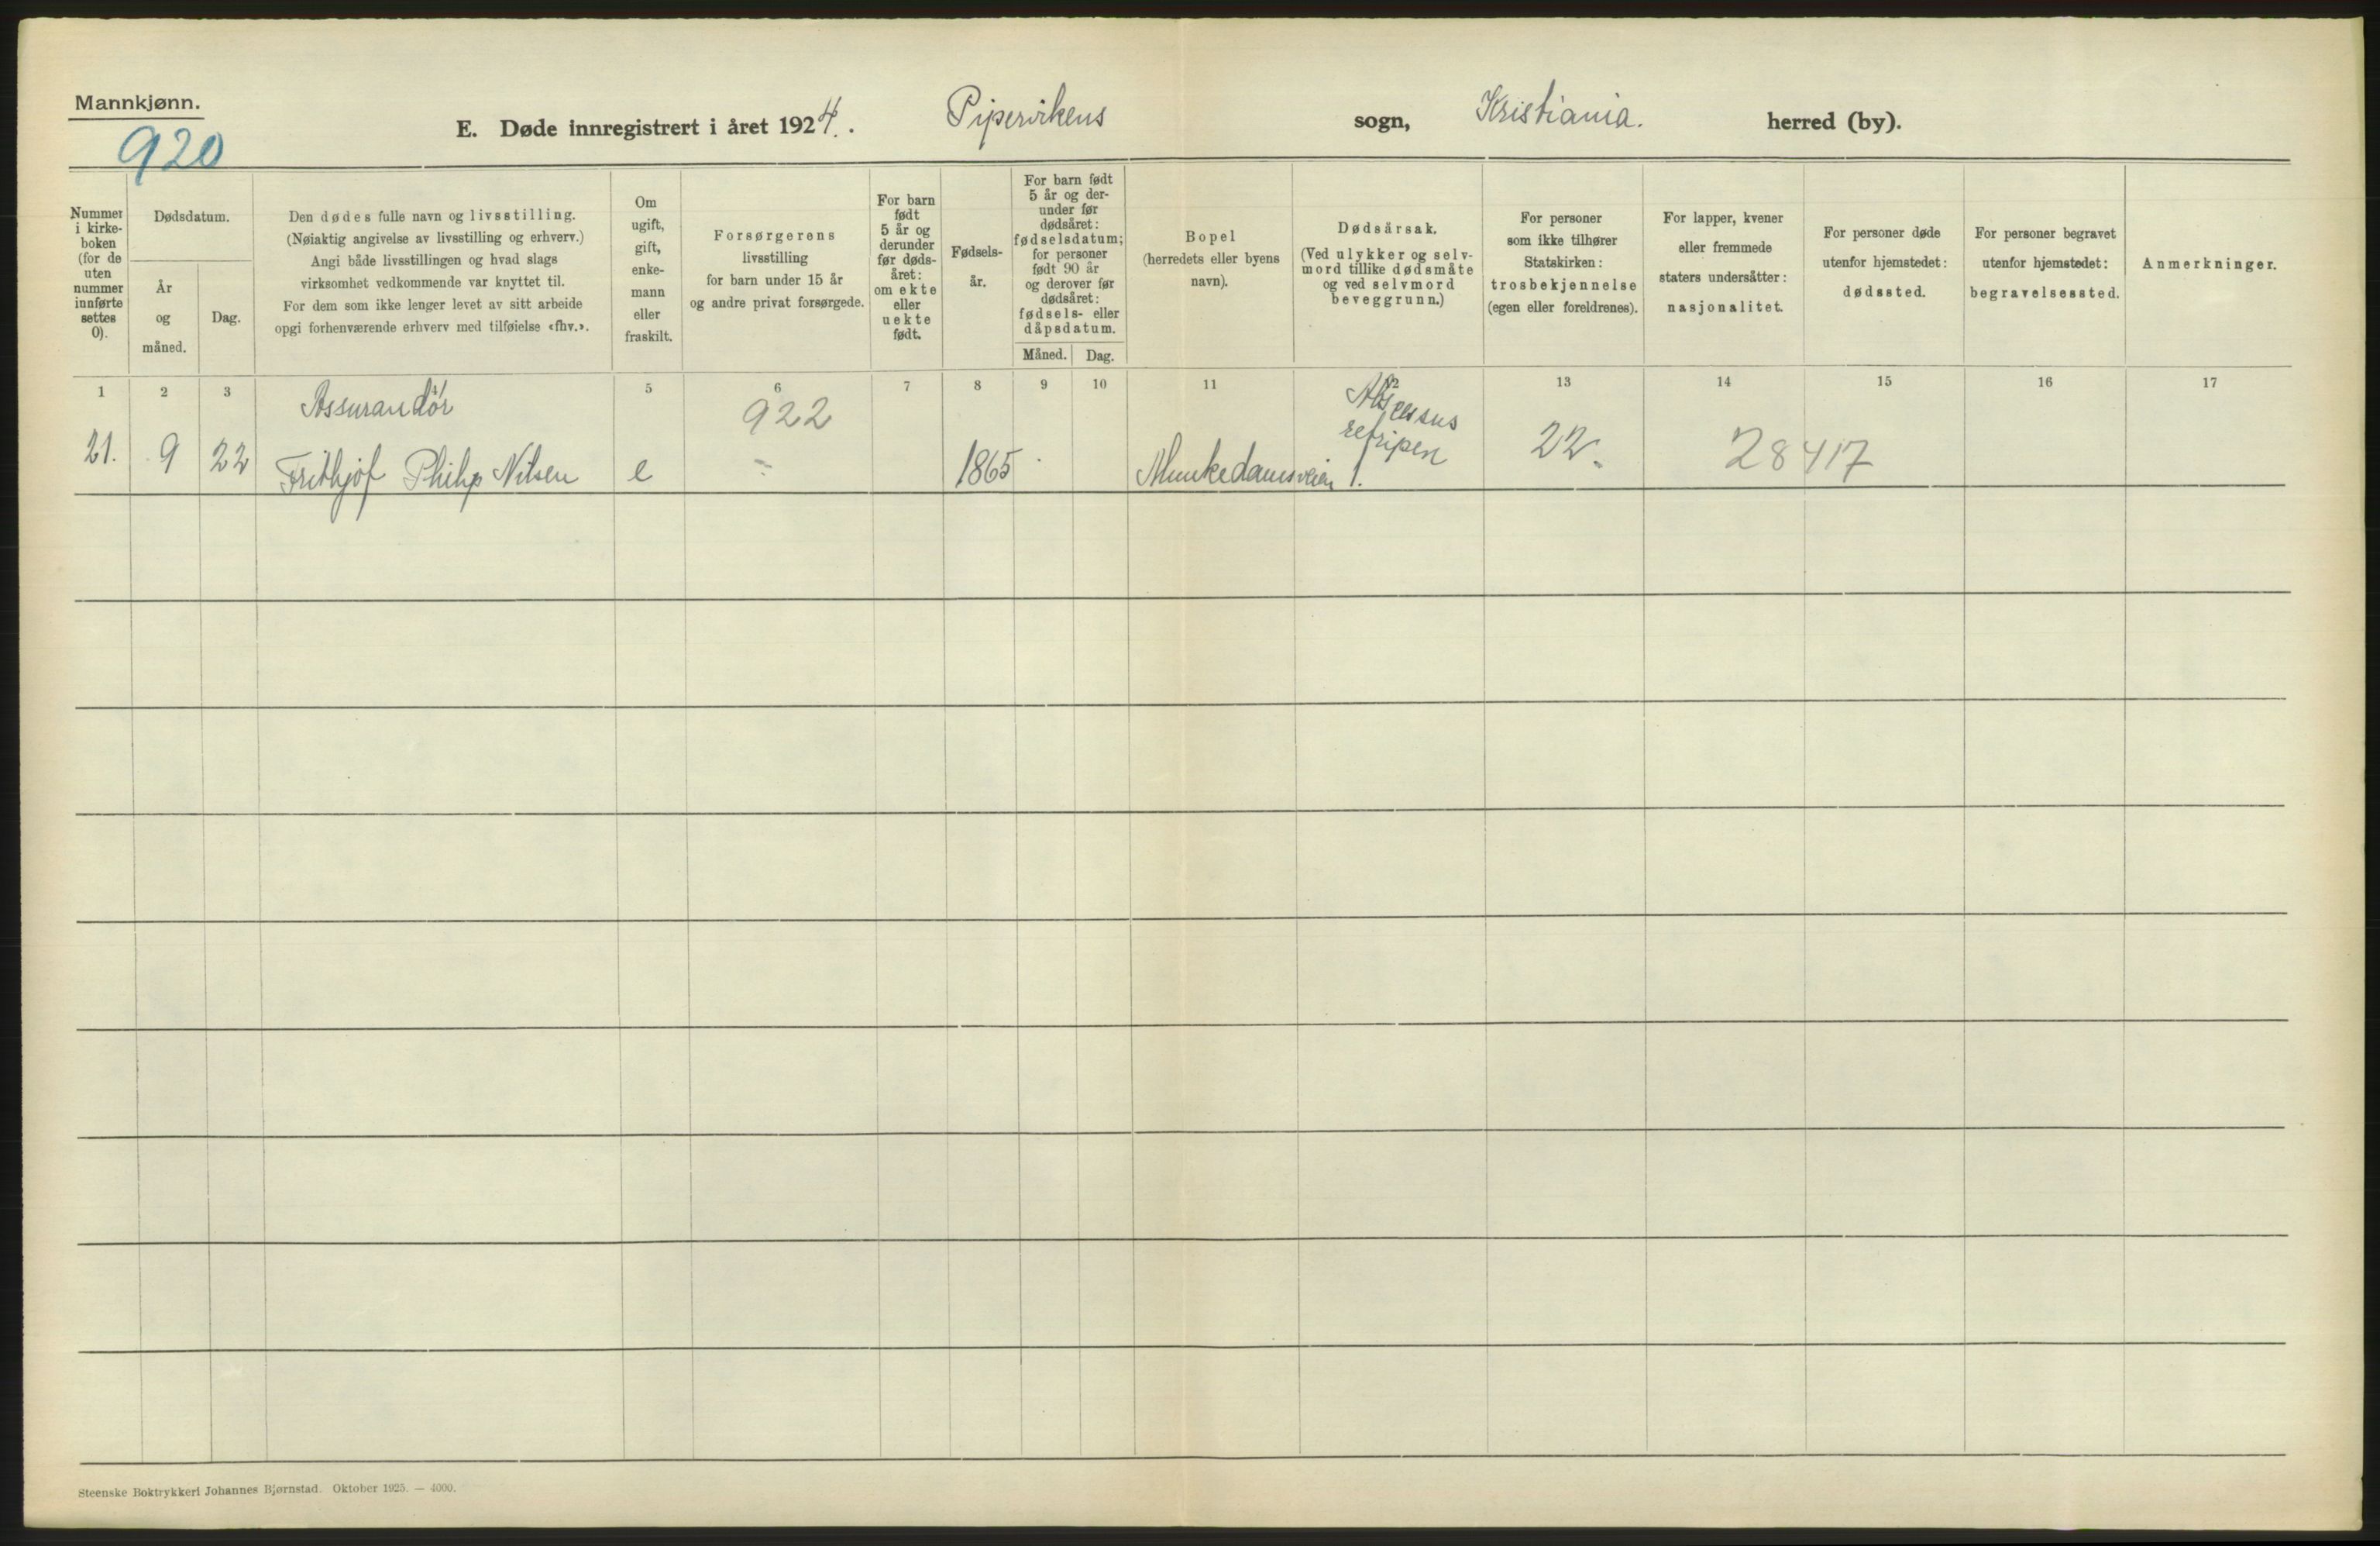 Mannkjønn.
920
E. Døde innregistrert i året 1924. Pipervikens sogn, Kristiania. herred (by).
Nummer
i kirke-
boken
(for de
uten
nummer
innførte
settes
0).
Dødsdatum.
År
og
måned.
Dag.
Den dødes fulle navn og livsstilling.
(Nøiaktig angivelse av livsstilling og erhverv.)
Angi både livsstillingen og hvad slags
virksomhet vedkommende var knyttet til.
For dem som ikke lenger levet av sitt arbeide
opgi forhenværende erhverv med tilføielse «fhv.».
Om
ugift,
gift,
enke-
mann
eller
fraskilt.
Forsørgerens
livsstilling
for barn under 15 år
og andre privat forsørgede.
For barn
født
5 år og
derunder
før døds-
året:
om ekte
eller
uekte
født.
Fødsels-
år.
For barn født
5 år og der-
under før
dødsåret:
fødselsdatum;
for personer
født 90 år
og derover før
dødsåret:
fødsels- eller
dåpsdatum.
Måned. Dag.
Bopel
(herredets eller byens
navn).
Dødsårsak.
(Ved ulykker og selv-
mord tillike dødsmåte
og ved selvmord
beveggrunn.)
For personer
som ikke tilhører
Statskirken:
trosbekjennelse
(egen eller foreldrenes).
For lapper, kvener
eller fremmede
staters undersåtter:
nasjonalitet.
For personer døde
utenfor hjemstedet:
dødssted.
For personer begravet
utenfor hjemstedet:
begravelsessted.
Anmerkninger.
1 2 3 4 5 6 7 8 9 10 11 12 13 14 15 16 17
Assurandør 922 Abscessus
21. 9 22 Frithjof Philip Nilsen e - 1865 Munkedamsveien 1. 22. 28417
Steenske Boktrykkeri Johannes Bjørnstad. Oktober 1925. — 4000.